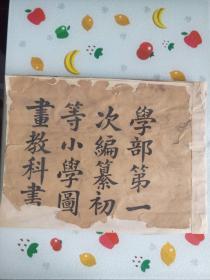 學部第一
次編纂初
等小學圖
畫教科書